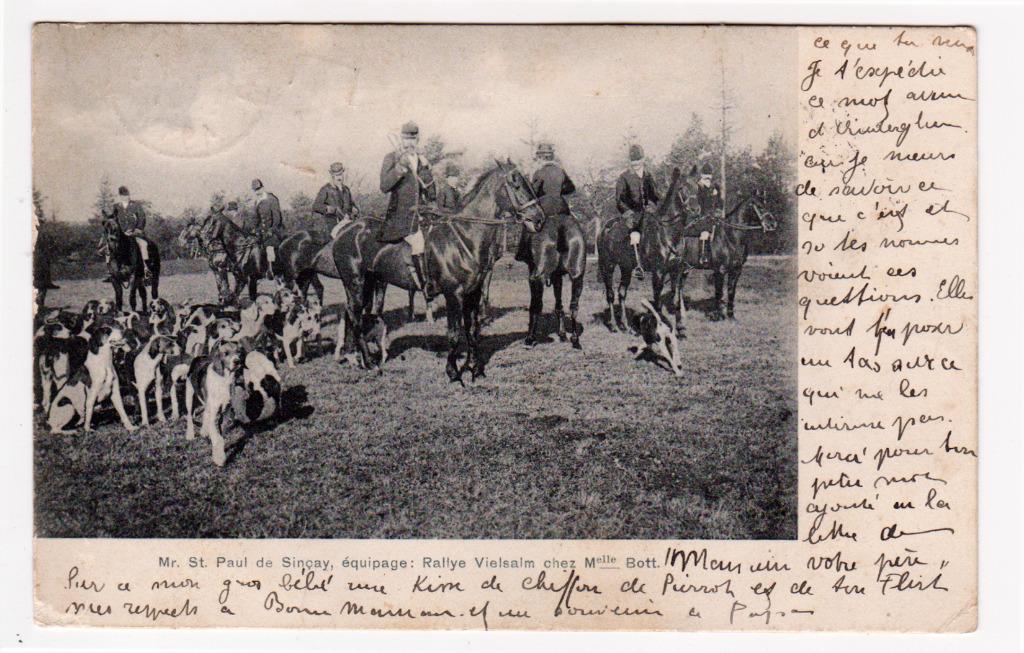 ce que tu
Je t'expédie
ce mot avan
d'
car je meurs
de savoir ce
que c'est et
so les nonnes
voient ces
questions. Elles
vont t'en poser
un tas sur ce
qui ne les
intéresse pas.
Merci pour ton
petit mot
ajouté en la
lettre de
votre père "
Mr. St. Paul de Sinçay, équipage: Rallye Vielsalm chez Melle Bott.
Sur ce mon gros bébé une Kisse de chiffon de Pierrot et de ton Flirt
mes respects à Bonne Maman et un souvenir à Papa